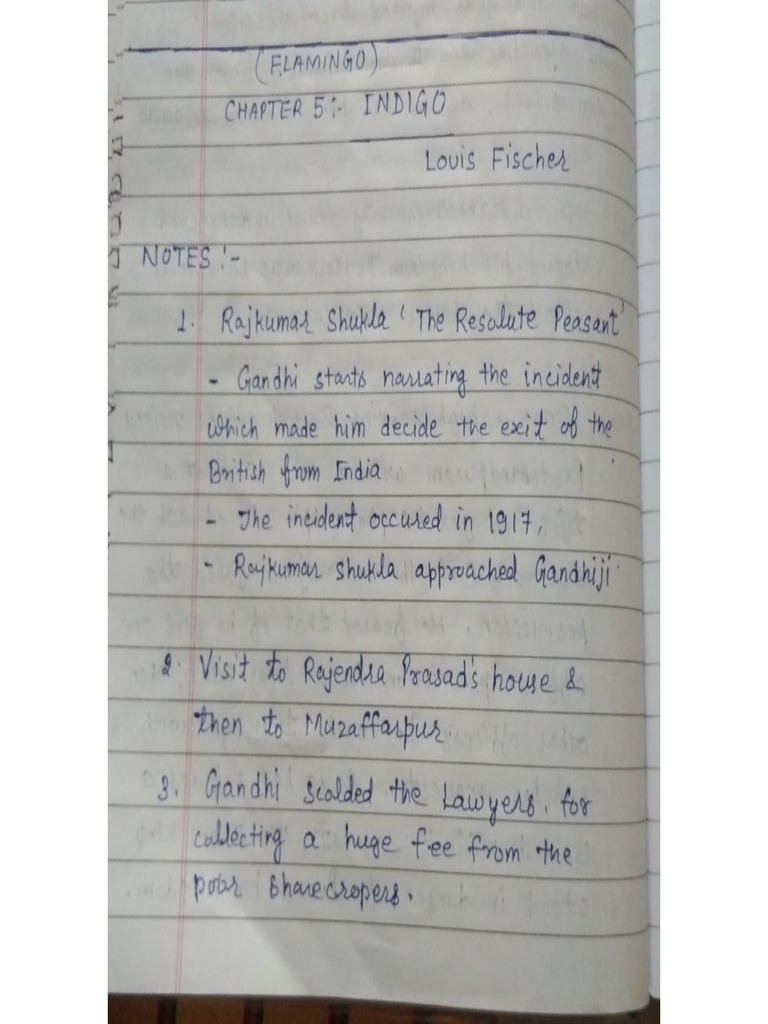 (FLAMINGO)
CHAPTER 5:- INDIGO
Louis Fischer
NOTES :-
1. Rajkumar Shukla 'The Resolute Peasant'
- Gandhi starts narrating the incident
which made him decide the exit of the
British from India
- The incident occured in 1917,
- Rajkumar shukla approached Gandhiji
2. Visit to Rajendra Prasad's house &
then to Muzaffarpur.
3. Gandhi scolded the Lawyers, for
collecting a huge fee from the
poor sharecropers.